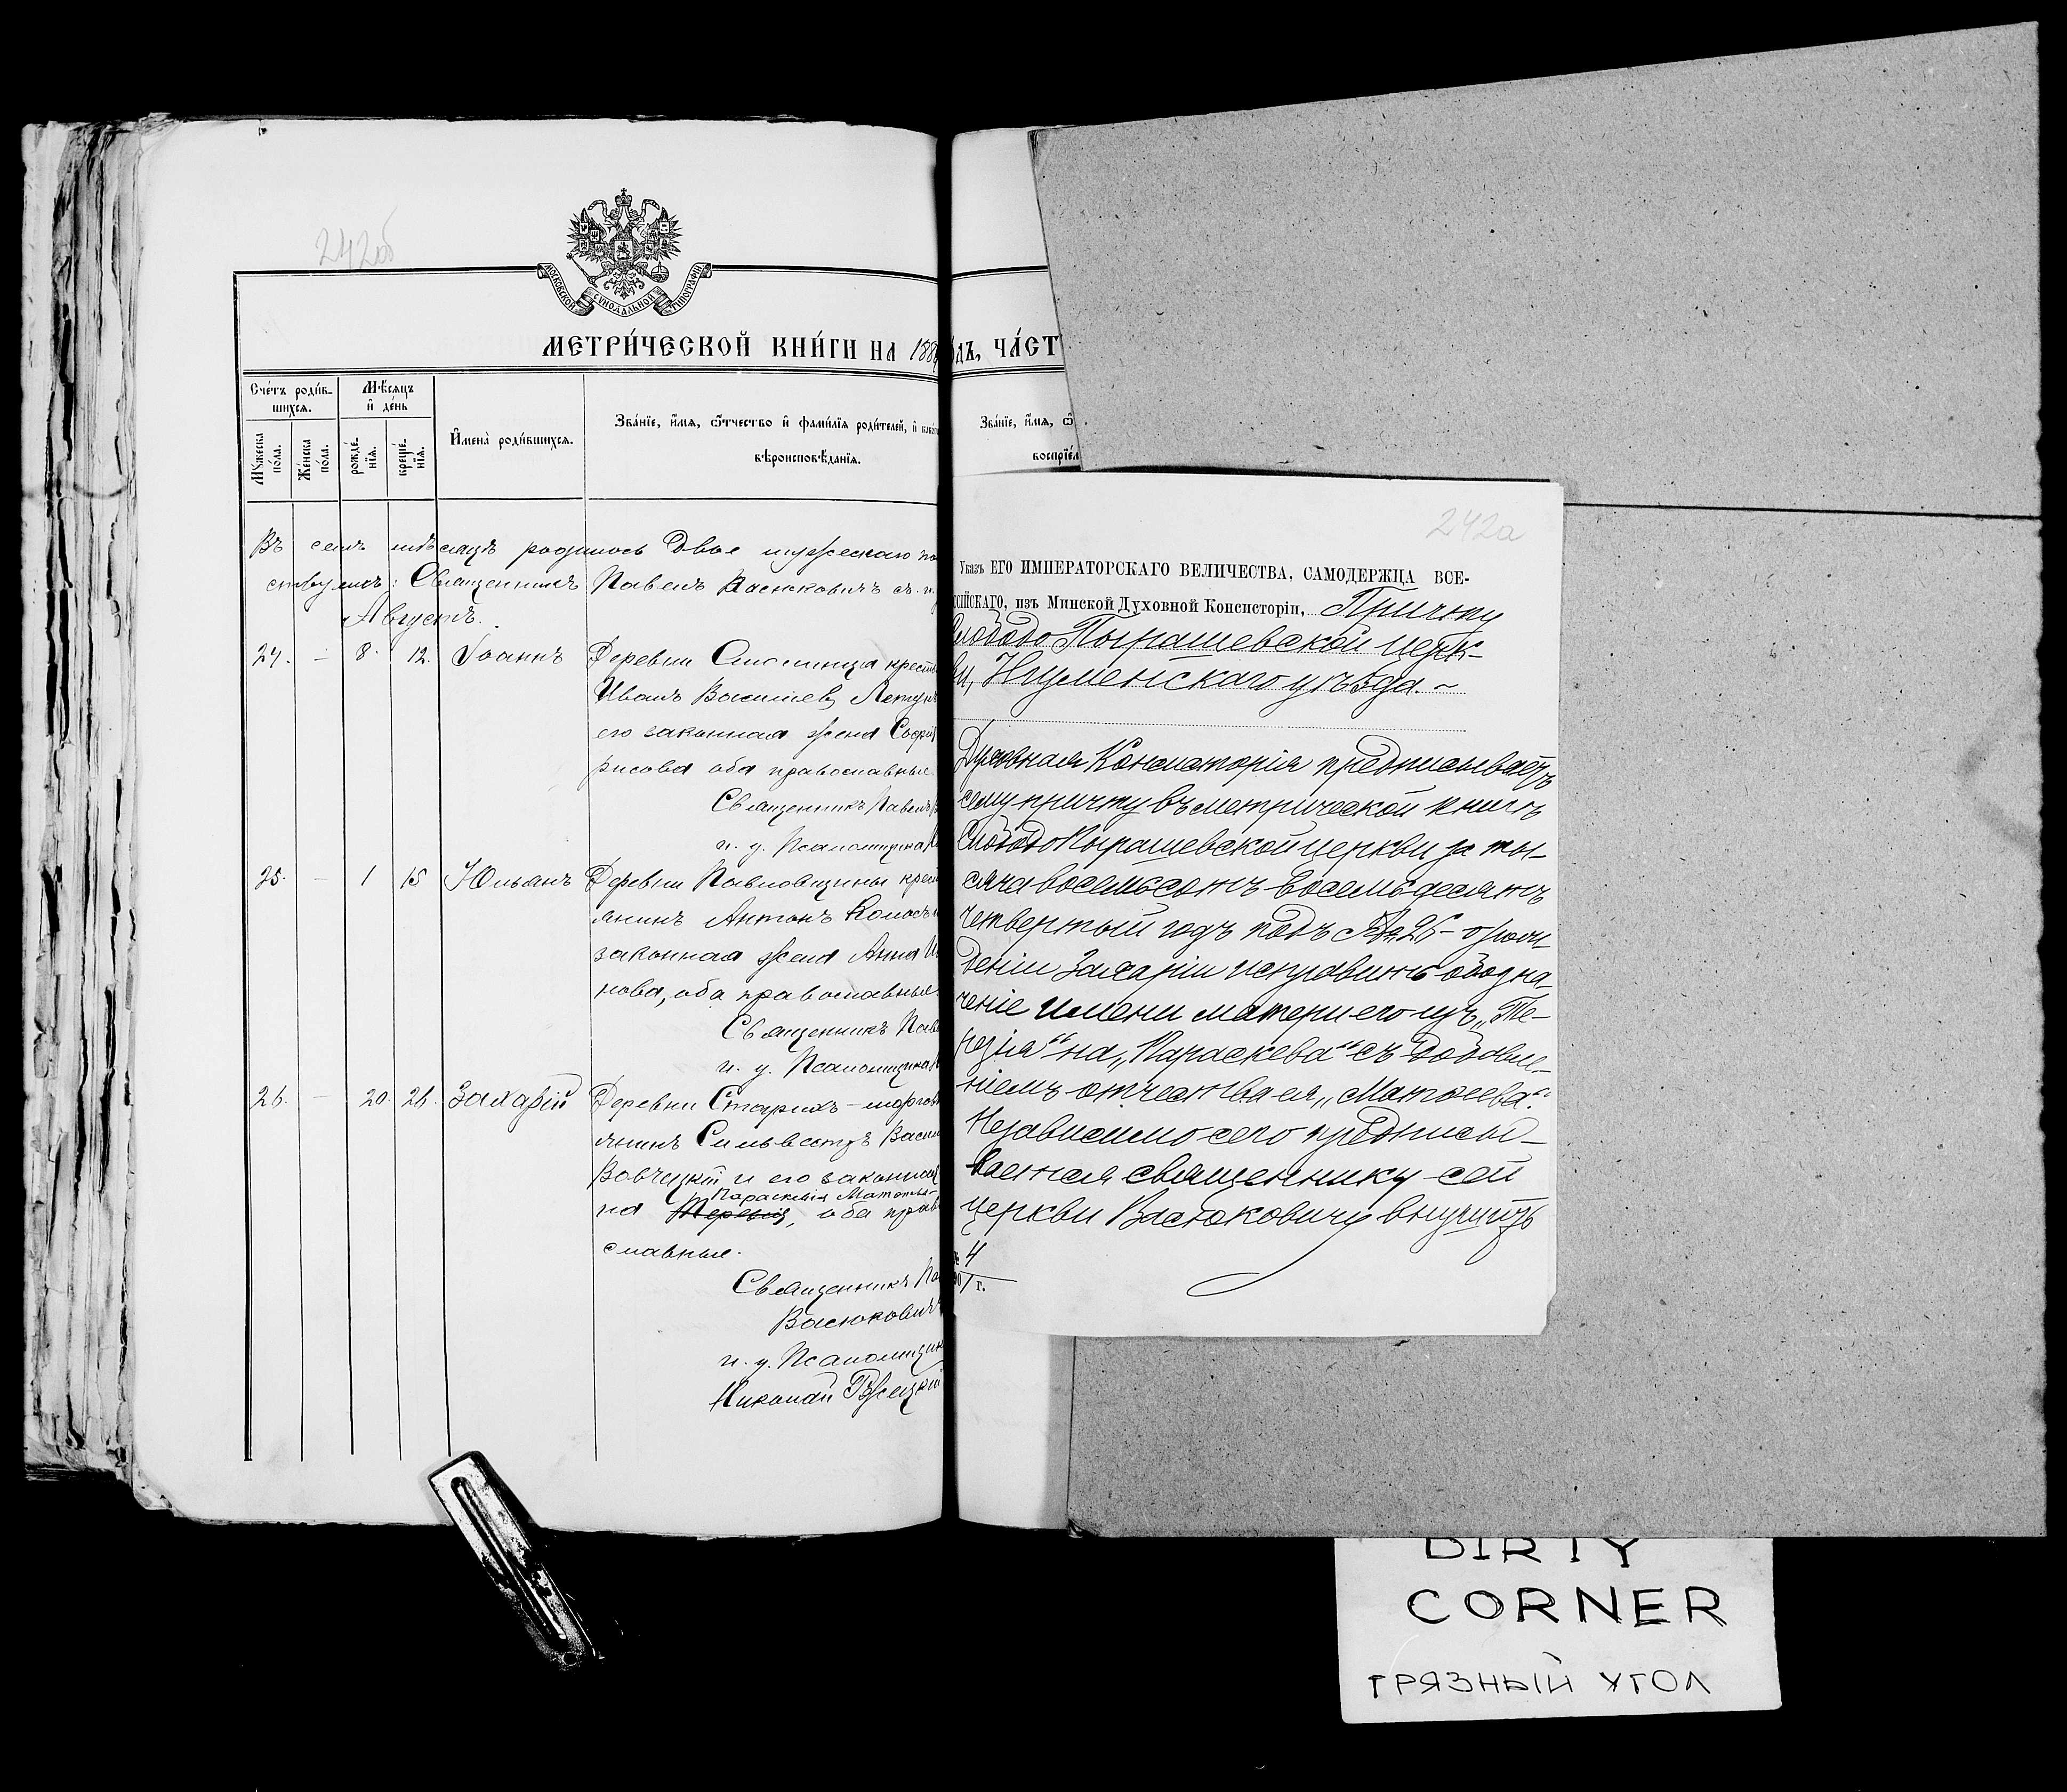 242об
МОСКОВСКОЙ СУНОДАЛЬНОЙ ТИПОГРАФІИ
МЕТРИ́ЧЕСКОЙ КНИ́ГИ НА 188
Счетъ роди́в-
шихся.
Мѣсяцъ
и҆ де́нь
И҆мена̀ роди́вшихся.
Зва́нїе, и҆́мя, ѻ҆́тчество и҆ фами́лїя роди́телей, и҆
вѣроисповѣ́данїя.
Мꙋжеска по́ла.
Же́нска по́ла.
рожде́нїя.
креще́нїя.
Въ семъ мѣсяцѣ родилось двое мужескаго по
ствующихъ: Священникъ Павелъ Васюковичъ съ и.
Августъ.
24. – 8. 12. Іоаннъ Деревни Смолинца крест
Иванъ Васильев Летун
его законная жена Софі
рисова оба православные.
Священникъ Павелъ
и. д. Псаломщика
25. – 1 15 Юльянъ Деревни Павловщины крест
янинъ Антонъ Колосъ
законная жена Анна И
нова, оба православные.
Священникъ Паве
и. д. Псаломщика
26. – 20. 26. Захарій Деревни Старихъ-морго
янинъ Сильвестръ Васил
Вовчецкій и его законная
Параскевія Матѳѣе-
на Терезія, оба право
славные.
Священникъ Па
Васюкович
и. д. Псаломщик
Николай Ржецкій
ДЪ, ЧА́СТ
Зва́нїе, и҆́мя, ѻ҆
воспрїе́м
242а
Указъ ЕГО ИМПЕРАТОРСКАГО ВЕЛИЧЕСТВА, САМОДЕРЖЦА ВСЕ-
СІЙСКАГО, изъ Минской Духовной Консисторіи, Причту
Слободо Пырашевской церк-
ви, Игуменскаго уѣзда. ~
Духовная Консисторія предписываетъ
сему причту въ метрической книгѣ
Слободо Пырашевской церкви за ты-
сяча восемьсотъ восемьдесятъ
четвертый годъ подъ № 26 – о рож
деніи Захаріи исправить обозна-
ченіе имени матери его изъ „Те-
резія“ на „Параскева“ съ добавле-
ніемъ отчества ея „Матѳеева“.
Независимо сего предписы-
вается священнику сей
церкви Васюковичу внушить
4
/ г.
DIRTY
CORNER
ГРЯЗНЫЙ УГОЛ